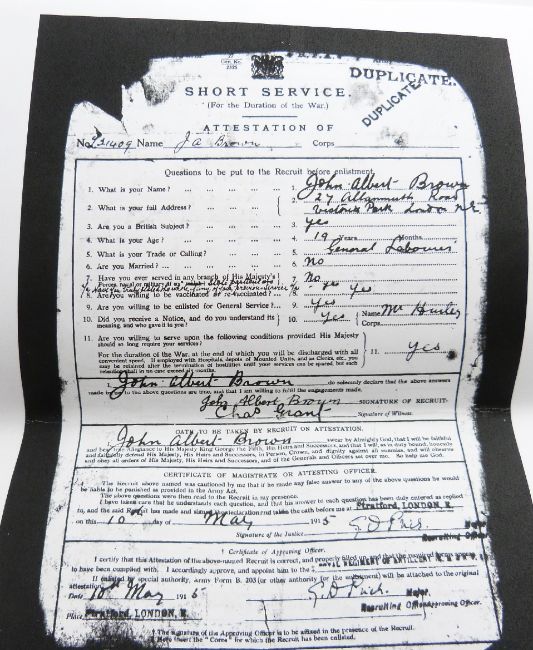 DUPLICATE.
DUPLICATE
SHORT SERVICE.
(For the Duration of the War.)
ATTESTATION OF
No. Name J A Brown Corps
Questions to be put to the Recruit before enlistment.
1. What is your Name? ... 1. John Albert Brown
2. What is your full Address? ... 2. 27 Road
Victoria Park London N.E.
3. Are you a British Subject? ... 3. Yes
4. What is your Age? ... 4. 19 Years Months
5. What is your Trade or Calling? ... 5. General Labourer
6. Are you Married? ... 6. No
7. Have you ever served in any branch of His Majesty's 7. No
8. Are you willing to be vaccinated or re-vaccinated? 8. Yes
9. Are you willing to be enlisted for General Service? 9. Yes
10. Did you receive a Notice, and do you understand its meaning, and who gave it to you? 10. Yes Name Mr
Corps
11. Are you willing to serve upon the following conditions provided His Majesty
should so long require your services?
For the duration of the War, at the end of which you will be discharged with all
convenient speed. If employed with Hospitals, depots of Mounted Units, and as Clerks, etc., you
may be retained after the termination of hostilities until your services can be spared, but such
retention shall in no case exceed six months. 11. Yes
I, John Albert Brown do solemnly declare that the above answers
made by me to the above questions are true, and that I am willing to fulfil the engagements made.
John Albert Brown SIGNATURE OF RECRUIT.
Chas Grant Signature of Witness.
OATH TO BE TAKEN BY RECRUIT ON ATTESTATION.
I, John Albert Brown swear by Almighty God, that I will be faithful
and bear true Allegiance to His Majesty King George the Fifth, His Heirs and Successors, and that I will, as in duty bound, honestly
and faithfully defend His Majesty, His Heirs and Successors, in Person, Crown, and dignity against all enemies, and will observe
and obey all orders of His Majesty, His Heirs and Successors, and of the Generals and Officers set over me. So help me God.
CERTIFICATE OF MAGISTRATE OR ATTESTING OFFICER.
The Recruit above named was cautioned by me that if he made any false answer to any of the above questions he would
be liable to be punished as provided in the Army Act.
The above questions were then read to the Recruit in my presence.
I have taken care that he understands each question, and that his answer to each question has been duly entered as replied
to, and the said Recruit has made and signed the declaration and taken the oath before me at Stratford, LONDON, E.
on this 10th day of May 1915
Signature of the Justice Major
Recruiting Officer
† Certificate of Approving Officer.
I certify that this Attestation of the above-named Recruit is correct, and properly filled up, and that the required forms appear
to have been complied with. I accordingly approve, and appoint him to the ROYAL REGIMENT OF ARTILLERY
If enlisted by special authority, Army Form B. 203 (or other authority for the enlistment) will be attached to the original
attestation.
Date 10th May 1915 Major.
Recruiting Officer Approving Officer.
Place Stratford, LONDON, E.
† The signature of the Approving Officer is to be affixed in the presence of the Recruit.
Here insert the "Corps" for which the Recruit has been enlisted.